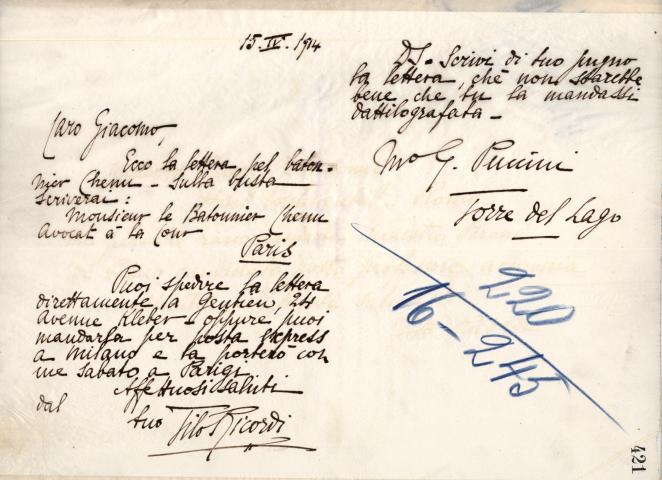 15. IV. 1914
Caro Giacomo,
Ecco la lettera pel baton-
nier Chenu - Sulla busta
scriverai:
Monsieur le Batonnier Chenu
Avocat à la Cour
Paris
Puoi spedire la lettera
direttamente a Gentien, 24
Avenue Kleber - oppure puoi
mandarla per posta express
a Milano e la porterò con
me sabato a Parigi
Affettuosi saluti
dal
tuo Tito Ricordi
P.S. - Scrivi di tuo pugno
la lettera, chè non starebbe
bene che tu la mandassi
dattilografata -
Mo G. Puccini
Torre del Lago
220
16 - 245
421